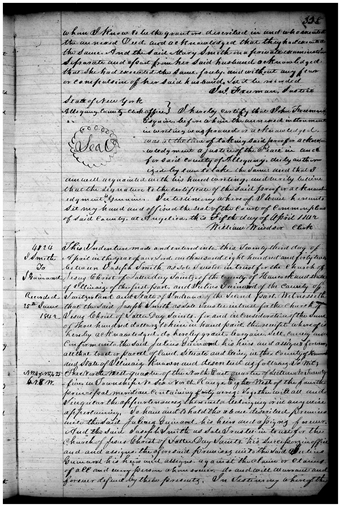 335
whom I know to be the grantors described in and who executed
the annexed Deed and acknowledged that they had executed
the same And the said Mary Smith on a private examination
separate and apart from her said husband acknowledged
that she had executed the same freely and without any fear
or compulsion of his said husband, let it be recorded
Freeman, Justice
State of New York
Allegany County Clerk's office } I hereby certify that John Freeman
Esquire before whom the annexed instrument
in writing was proved or acknowledged
was at the time of taking said proof or acknow
ledgment a Justice of the Peace in and
for said county of Allegany duly author
ized by law to take the same and that I
am well acquainted with his hand writing and verily believe
that the signature to the certificate of the said proof or acknow
ledgment Genuine. In testimony whereof I have hereunto
set my hand and affixed the seal of the Court of Common pleas
of said county, at Angelica this day of April 1842
William Windsor Clerk
Seal
4024
J Smith
To
J
Recorded
1842
6 N 8 W
This Indenture made and entered into this Twenty third day of
April in the year of our Lord one thousand eight hundred and forty two
between Joseph Smith as sole trustee in trust for the Church of
Jesus Christ of Latter Day Saints of the county of Hancock and State
of Illinois of the first part, and Julius of the County of
and State of Indiana of the second part. Witnesseth
that the said Joseph Smith as sole trustee in trust for the Church of
Jesus Christ of Latter Day Saints, for and in consideration of the sum
of hundred dollars to him in hand paid the receipt whereof is
hereby acknowledged, do hereby grant bargain sell, convey and
Confirm unto the said Julius his heirs and assigns forever
all that tract or parcel of land, situate and lying in the County of Hancock
and State of Illinois, known and described as follows to wit
The North West quarter of the North East quarter of Section Number
in Township No Six North Range Eight West of the fourth
principal meridian Containing forty acres Together with all and
Singular the appurtenances thereunto belonging or in any wise
appertaining. To have and to hold the above described premises
unto the said Julius his heirs and assigns forever
And the said Joseph Smith as sole trustee in trust for the
Church of Jesus Christ of Latter Day Saints his successors in office
and assigns the aforesaid premises unto the said Julius
his heirs and assigns against the claim or claims
of all and every person whomsoever do and will warrant and
forever defend by these presents. In Testimony whereof the